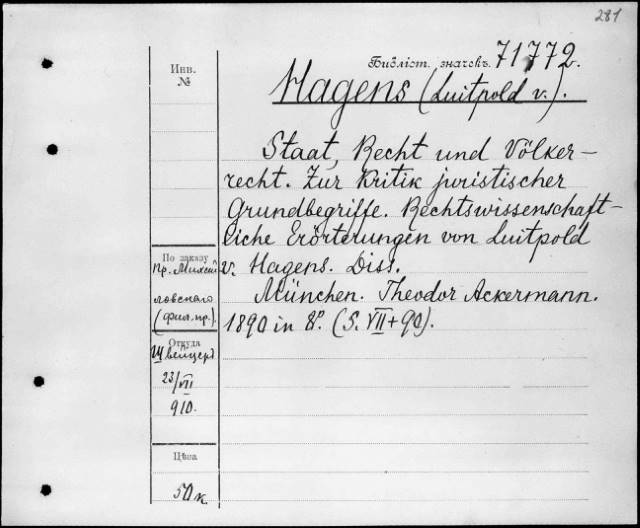 281
Библіот. значекъ. 71772.
Инв.
№
Hagens (Luitpold v.).
Staat, Recht und Völker-
recht. Zur Kritik juristischer
Grundbegriffe. Rechtswissenschaft-
liche Erörterungen von Luitpold
v. Hagens. Diss.
München. Theodor Ackermann.
1890 in 8º. (S. VII+90).
По заказу
Пр. Михай
ловскаго
(фил. пр.).
Откуда
Швейцеръ
23/VII
910.
Цѣна
50 к.